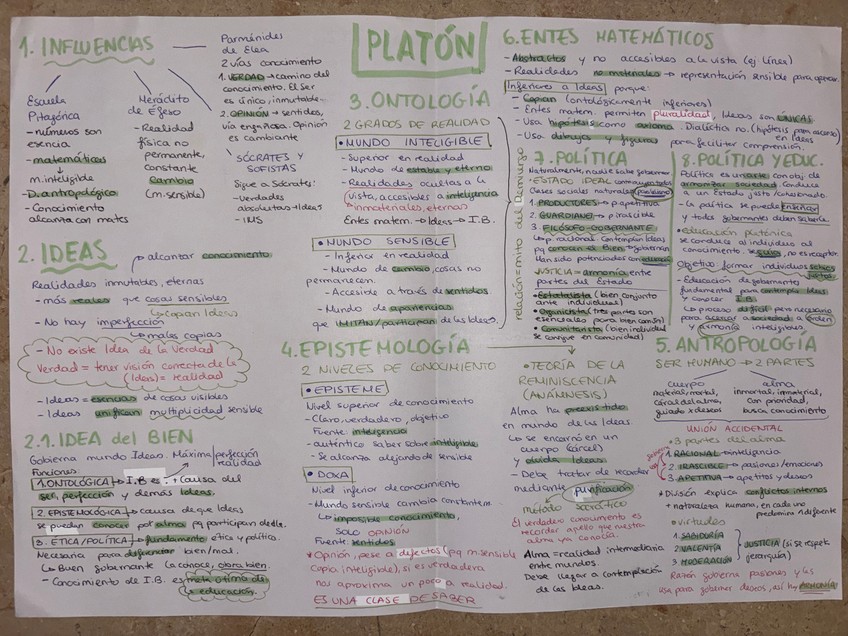 PLATÓN
1. INFLUENCIAS
Escuela
Pitagórica
- números son
esencia
- matemáticas
→ m.inteligible
- D. antropológico
- Conocimiento
alcanza con mates
Heráclito
de Éfeso
- Realidad
física no
permanente,
constante
cambio
(m. sensible)
Parménides
de Elea
2 vías conocimiento
1. VERDAD → camino del
conocimiento. El Ser
es único, inmutable...
2. OPINIÓN → sentidos,
vía engañosa. Opinión
es cambiante
SÓCRATES Y
SOFISTAS
Sigue a Sócrates:
- Verdades
absolutas → Ideas
2. IDEAS
→ alcanzar conocimiento
Realidades inmutables, eternas
- más reales que cosas sensibles
↳ copian Ideas
- No hay imperfección
↳ malas copias
- No existe Idea de la Verdad
Verdad = tener visión correcta de la
(Ideas) = realidad
- Ideas = esencias de cosas visibles
- Ideas unifican multiplicidad sensible
2.1. IDEA del BIEN
Gobierna mundo Ideas. Máxima perfección
realidad
Funciones:
1. ONTOLÓGICA → I.B es + causa del
ser, perfección y demás Ideas.
2. EPISTEMOLÓGICA → causa de que Ideas
se puedan conocer por alma pq participan de ella.
3. ÉTICA/POLÍTICA → fundamento ética y política.
Necesaria para diferenciar bien/mal.
↳ Buen gobernante (la conoce, obra bien.
- Conocimiento de I.B. es meta última de
la educación.
3. ONTOLOGÍA
2 GRADOS DE REALIDAD
• MUNDO INTELIGIBLE
- Superior en realidad
- Mundo de estable y eterno
- Realidades ocultas a la
vista, accesibles a inteligencia
inmateriales, eternas
Entes matem. → Ideas → I.B.
• MUNDO SENSIBLE
- Inferior en realidad
- Mundo de cambio, cosas no
permanecen.
- Accesible a través de sentidos
- Mundo de apariencias
que IMITAN/participan de las Ideas.
relación = mito del Demiurgo
4. EPISTEMOLOGÍA
2 NIVELES DE CONOCIMIENTO
• EPISTEME
Nivel superior de conocimiento
- Claro, verdadero, objetivo
Fuente: inteligencia
- auténtico saber sobre inteligible
- Se alcanza alejando de sensible
• DOXA
Nivel inferior de conocimiento
- Mundo sensible cambia constantem.
↳ imposible conocimiento,
SOLO OPINIÓN
Fuente: sentidos
* Opinión, pese a defectos (pq m.sensible
copia inteligible), si es verdadera
nos aproxima un poco a realidad.
ES UNA CLASE DE SABER
• TEORÍA DE LA
REMINISCENCIA
(ANÁMNESIS)
Alma ha preexistido
en mundo de las Ideas
↳ se encarnó en un
cuerpo (cárcel)
y olvida Ideas
- Debe tratar de recordar
mediante purificación
método socrático
El verdadero conocimiento es
recordar aquello que nuestra
alma ya conocía.
Alma = realidad intermediaria
entre mundos.
Debe llegar a contemplación
de las Ideas.
6. ENTES MATEMÁTICOS
- Abstractos y no accesibles a la vista (ej línea)
- Realidades no materiales → representación sensible para operar
Inferiores a Ideas porque:
- Copian (ontológicamente inferiores)
- Entes matem. permiten pluralidad, Ideas son ÚNICAS
- Usa hipótesis como axioma. Dialéctica no. (hipótesis para ascenso)
en Ideas
- Usa dibujos y figuras para facilitar comprensión.
7. POLÍTICA
Naturalmente, nadie sabe gobernar.
• ESTADO IDEAL
Clases sociales naturales
1. PRODUCTORES → p. apetitiva
2. GUARDIANES → p. irascible
3. FILÓSOFO-GOBERNANTE
↳ p. racional. Contemplan Ideas
pq conocen de Bien → gobiernan
Han sido potenciados con educación
JUSTICIA = armonía entre
partes del Estado
- Estatalista (bien conjunto
ante individual)
- Organicista (tres partes son
esenciales para bien común)
- Comunitarista (bien individual
se consigue en comunidad)
8. POLÍTICA Y EDUC.
Política es un arte con obj. de
armonizar sociedad. Conduce
a un Estado justo / cohesionado.
- La política se puede enseñar
y todos gobernantes deben saberla
• educación platónica
se conduce al individuo al
conocimiento. Se guía, no es receptor.
Objetivo: formar individuos sabios
justos
- Educación de gobernantes
fundamental para contemplar Ideas
y conocer I.B.
↳ proceso difícil pero necesario
para acercar a sociedad a orden
y armonía inteligibles.
5. ANTROPOLOGÍA
SER HUMANO → 2 PARTES
cuerpo
material, mortal,
cárcel del alma,
guiado x deseos
alma
inmortal, inmaterial,
con prioridad,
busca conocimiento
UNIÓN ACCIDENTAL
• 3 partes del alma
1. RACIONAL → inteligencia
2. IRASCIBLE → pasiones/emociones
3. APETITIVA → apetitos y deseos
* División explica conflictos internos
+ naturaleza humana, en cada uno
predomina 1 diferente
• virtudes
1. SABIDURÍA
2. VALENTÍA
3. MODERACIÓN
JUSTICIA (si se respeta
jerarquía)
Razón gobierna pasiones y las
usa para gobernar deseos, así hay ARMONÍA